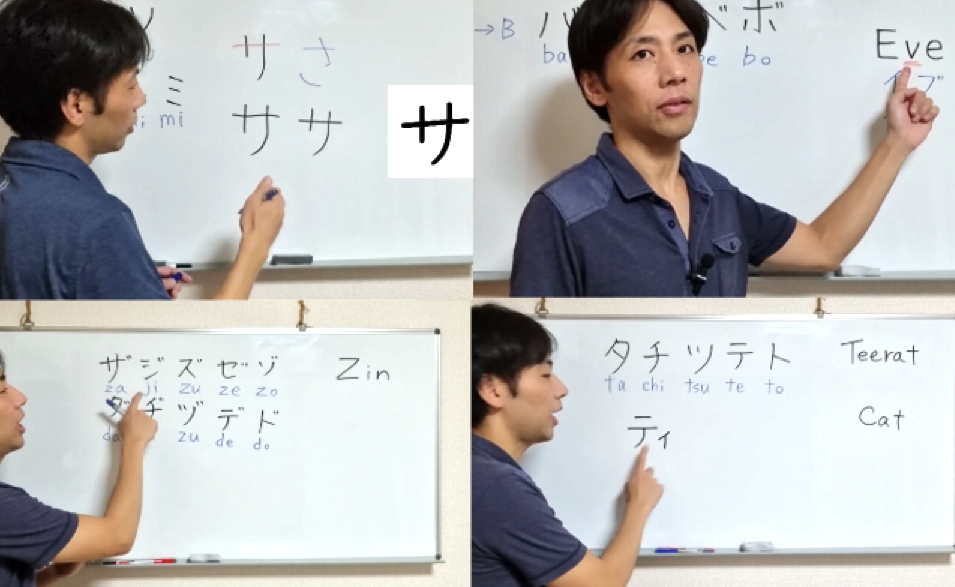 サ さ
ミ
mi
サ サ
サ
→B
ボ
ba be bo
Eve
イ ブ
ザ ジ ズ ゼ ゾ
za ji zu ze zo
ダ ヂ ヅ デ ド
da zu de do
Zin
タ チ ツ テ ト
ta chi tsu te to
ティ
Teerat
Cat